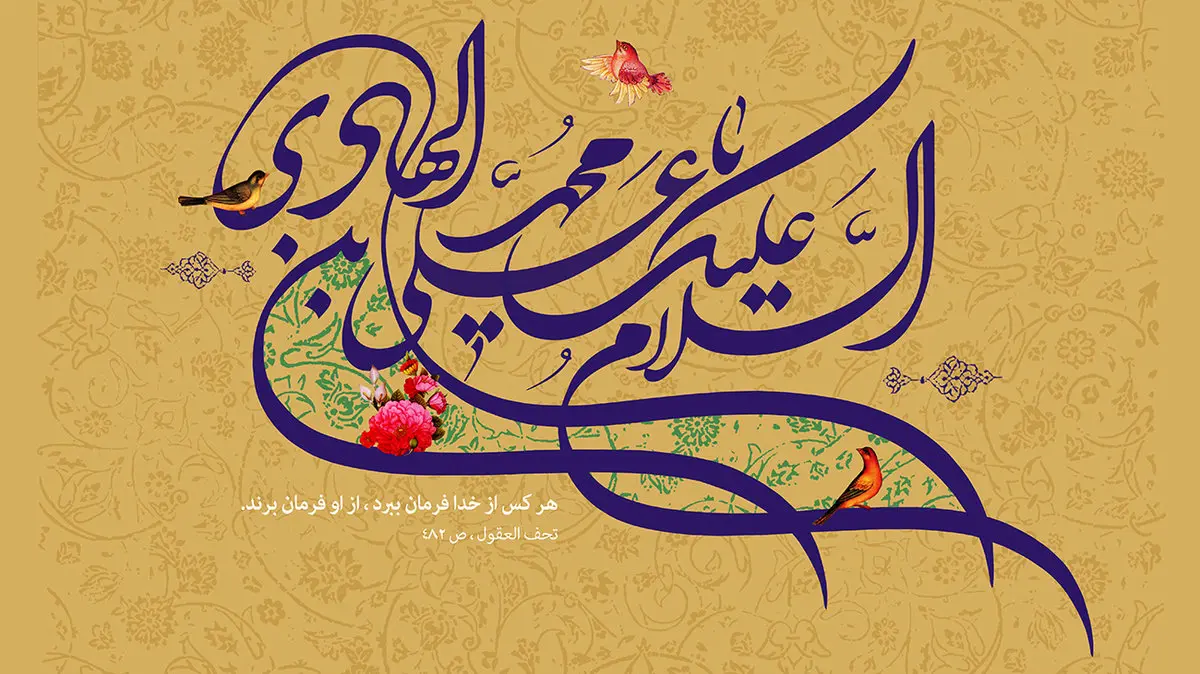 السلام علیک یا علی بن محمد الهادی
هر کس از خدا فرمان ببرد ، از او فرمان برند.
تحف العقول ، ص ۴۸۲